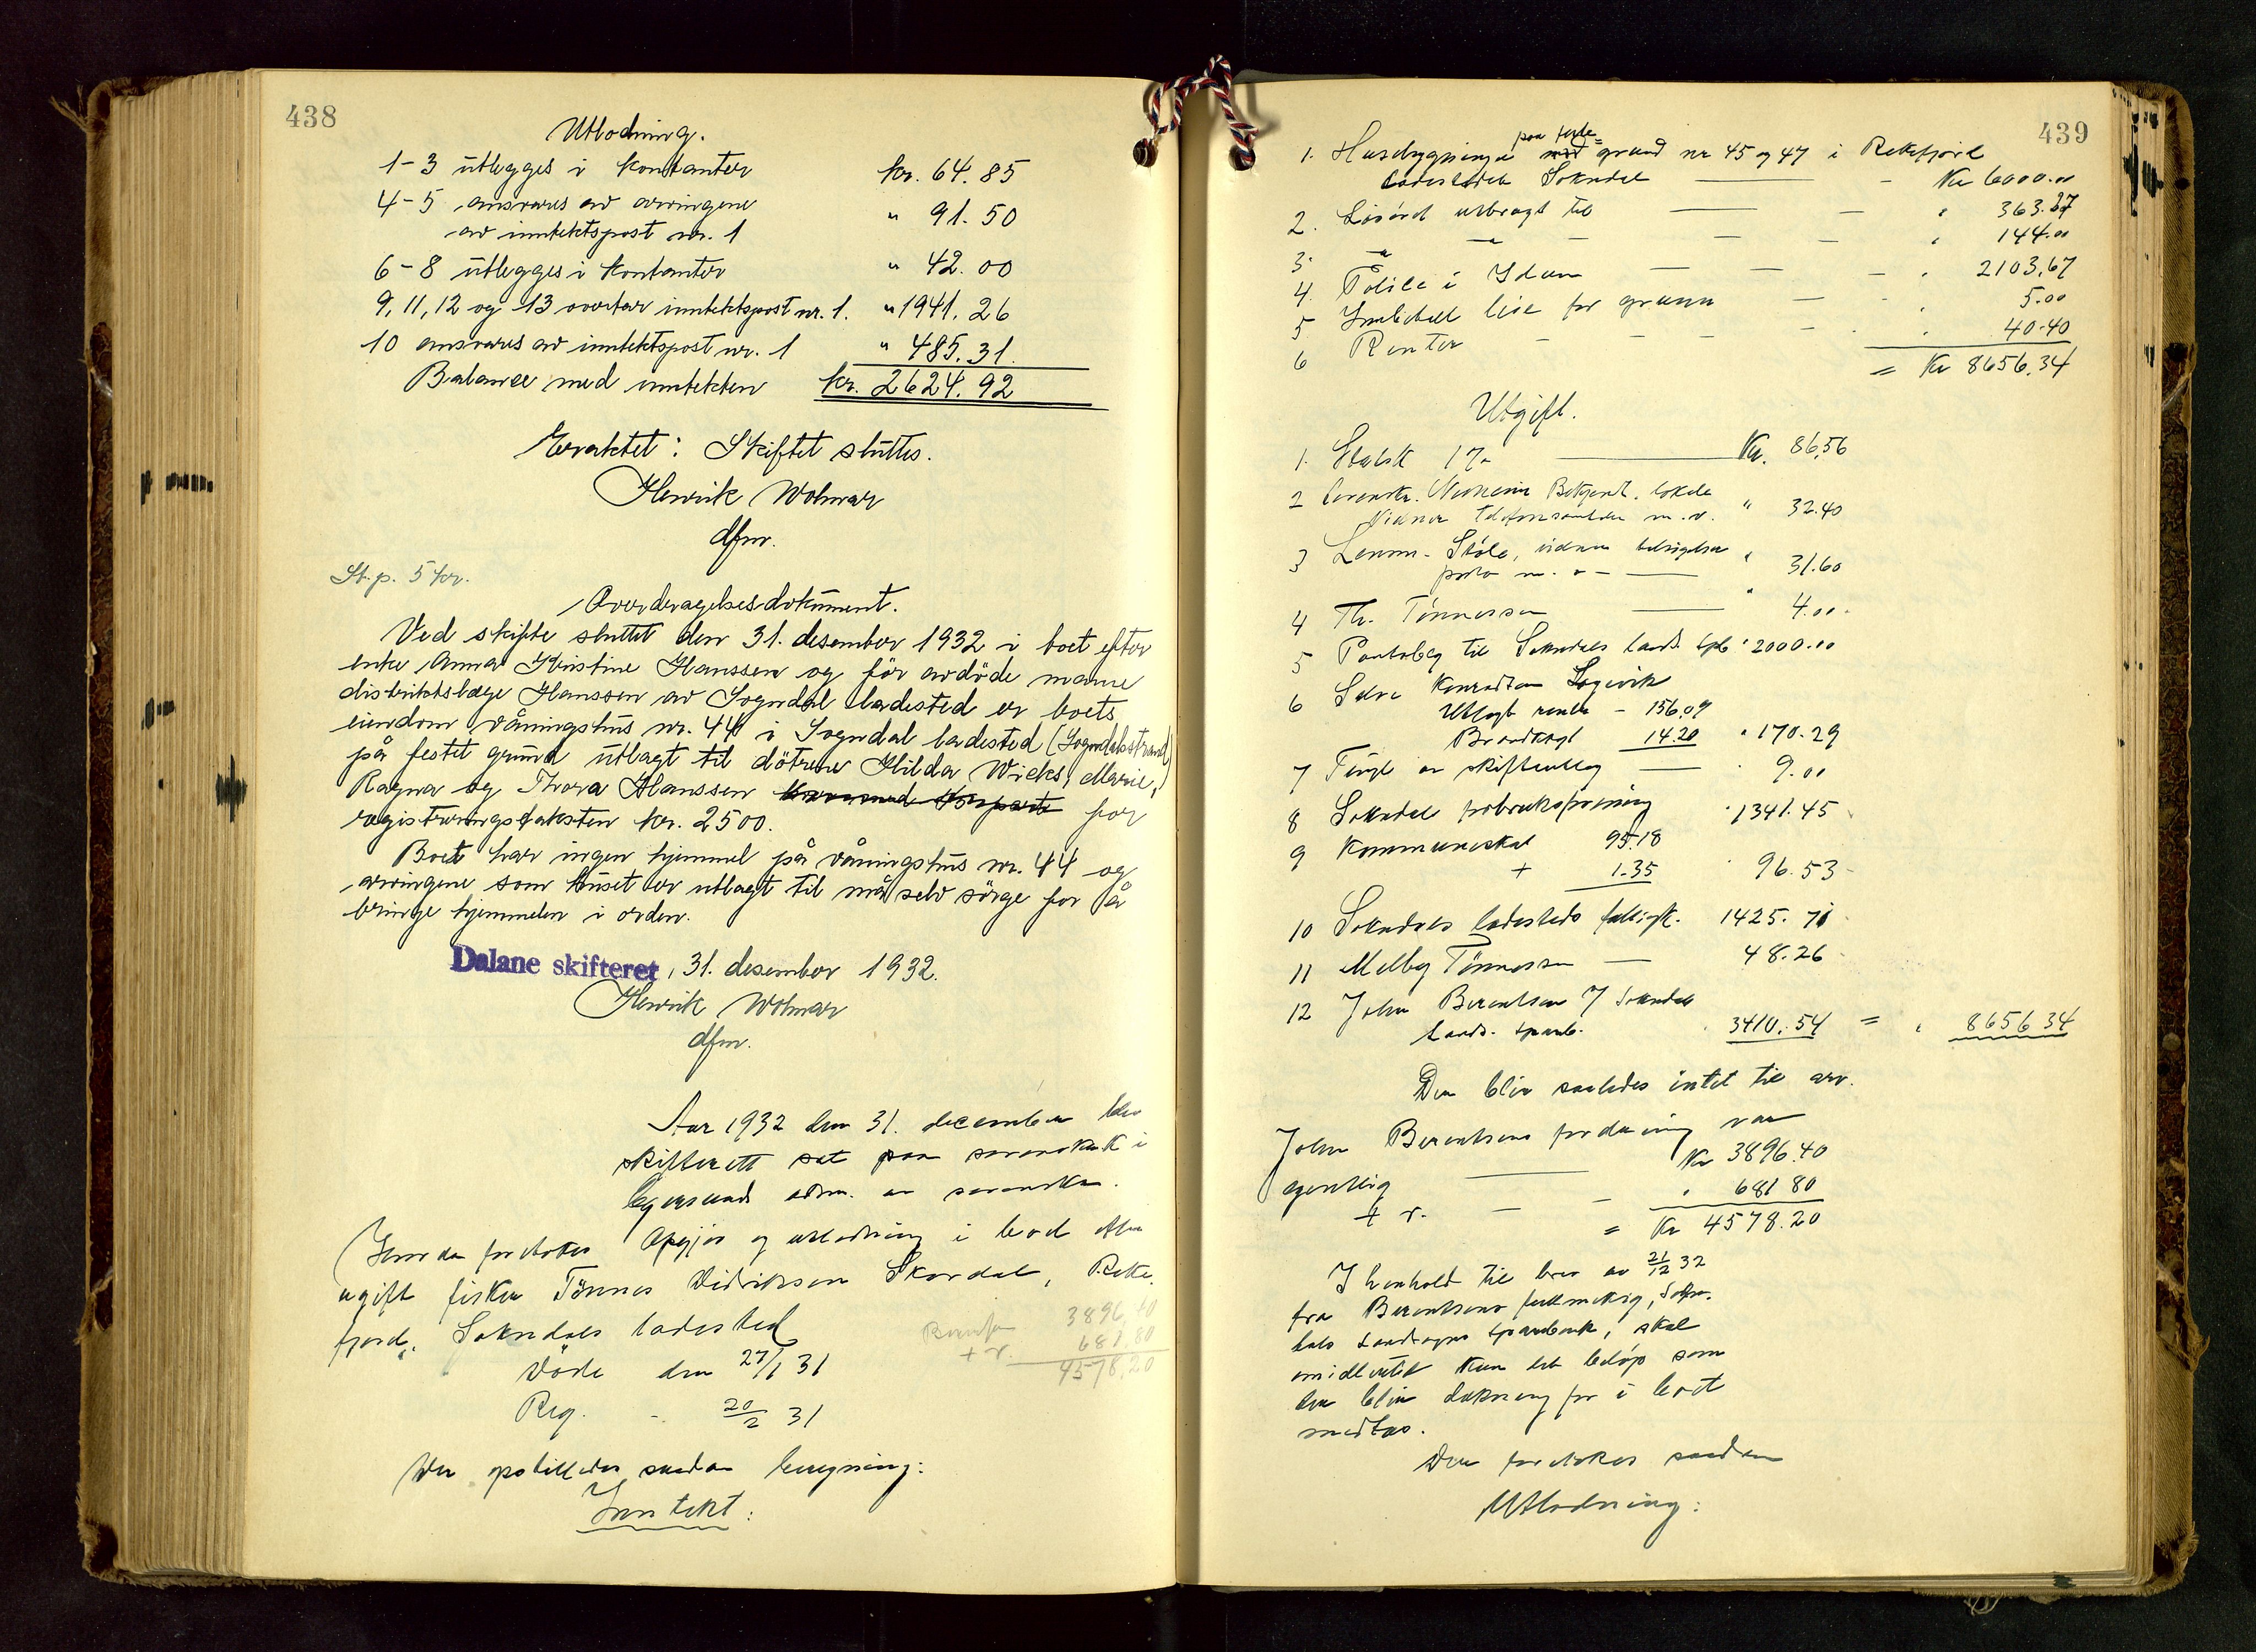 438
Utlodning.
1-3 utlegges i kontanter kr. 64.85
4-5 ansvares av arvingene
av inntektspost nr. 1 " 91.50
6-8 utlegges i kontanter " 42.00
9, 11, 12 og 13 overtar inntektspost nr. 1. " 1941.26
10 ansvares av inntektspost nr. 1 " 485.31.
Balanse med inntekten kr. 2624.92
Eraktet: Skiftet sluttes.
Henrik Wolmar
dfm.
St.p. 5 kr.
Overdragelsesdokument.
Ved skifte sluttet den 31. desember 1932 i boet efter
enke Anna Kristine Hanssen og før avdøde mann
distriktslæge Hanssen av Sogndal ladested er boets
eiendom våningshus nr. 44 i Sogndal ladested (Sogndalsstrand)
på festet grunn utlagt til døtrene Hilda Wicks, Marie,
Ragna og Thora Hanssen for
registreringstaksten kr. 2500.
Boet har ingen hjemmel på våningshus nr. 44 og
arvingene som huset er utlagt til må selv sørge for å
bringe hjemmelen i orden.
Dalane skifteret, 31. desember 1932.
Henrik Wolmar
dfm.
Aar 1932 den 31. december blev
skifterett sat paa sorenskr.k i
Egersund adm. av sorenskr.
Hvorda foretokes Opgjør og utlodning i bod etter
ugift fisker Tönnes Didriksen Skardal, Reke-
fjord, Sokndals ladested
Döde den 27/1 31
Reg. - 20/2 31
3896,40
+ r. 681,80
4578,20
Der opstilledes saadan beregning:
Inntekt:
439
1. Husbygninger paa feste- grund nr 45 og 47 i Rekefjord
ladested Sokndal - Kr 6000.00
2. Lösöre utbragt til " 363.27
3. " - " - " 144.00
4. Polise i Idun " 2103,67
5 Innbetalt leie for grunn 5.00
6 Renter " 40.40
= Kr 8656,34
Utgift.
1. Skatsk 1% Kr. 86,56
2 Sorenskr. Bekgjort. lokale
Vidner telefonsamtaler m.v. " 32.40
3 Lensm. Stöle, vidner
porto m.v. " 31.60
4 Th. Tönnessen " 4.00
5 Panteobl. til Sokndals lands. spb " 2000.00
6 Konradsen Logivik
Utlagt rente - 156.09
Brandkagt 14.20 " 170.29
7 Tingl. av skifteutleg " 9.00
8 Sokndals forbruksforening " 1341.45
9 Kommuneskat 95.18
+ 1.35 " 96.53
10 Sokndals ladesteds fattigk. 1425.71
11 Melby Tönnessen 48.26
12 John Berentsen / Sokndals
lands. sparb. 3410.54 = " 8656 34
Der blir saaledes intet til arv.
John Berentsens fordring var
egentlig Kr 3896.40
+ r. - " 681 80
= Kr 4578.20
I henhold til brev av 21/12 32
fra Berentsens fuldmektig, Sokn-
dals Landsogns Sparebank, skal
imidlertid kun det beløp som
der blir dekning for i boet
medtas.
Der foretokes saadan
Utlodning: